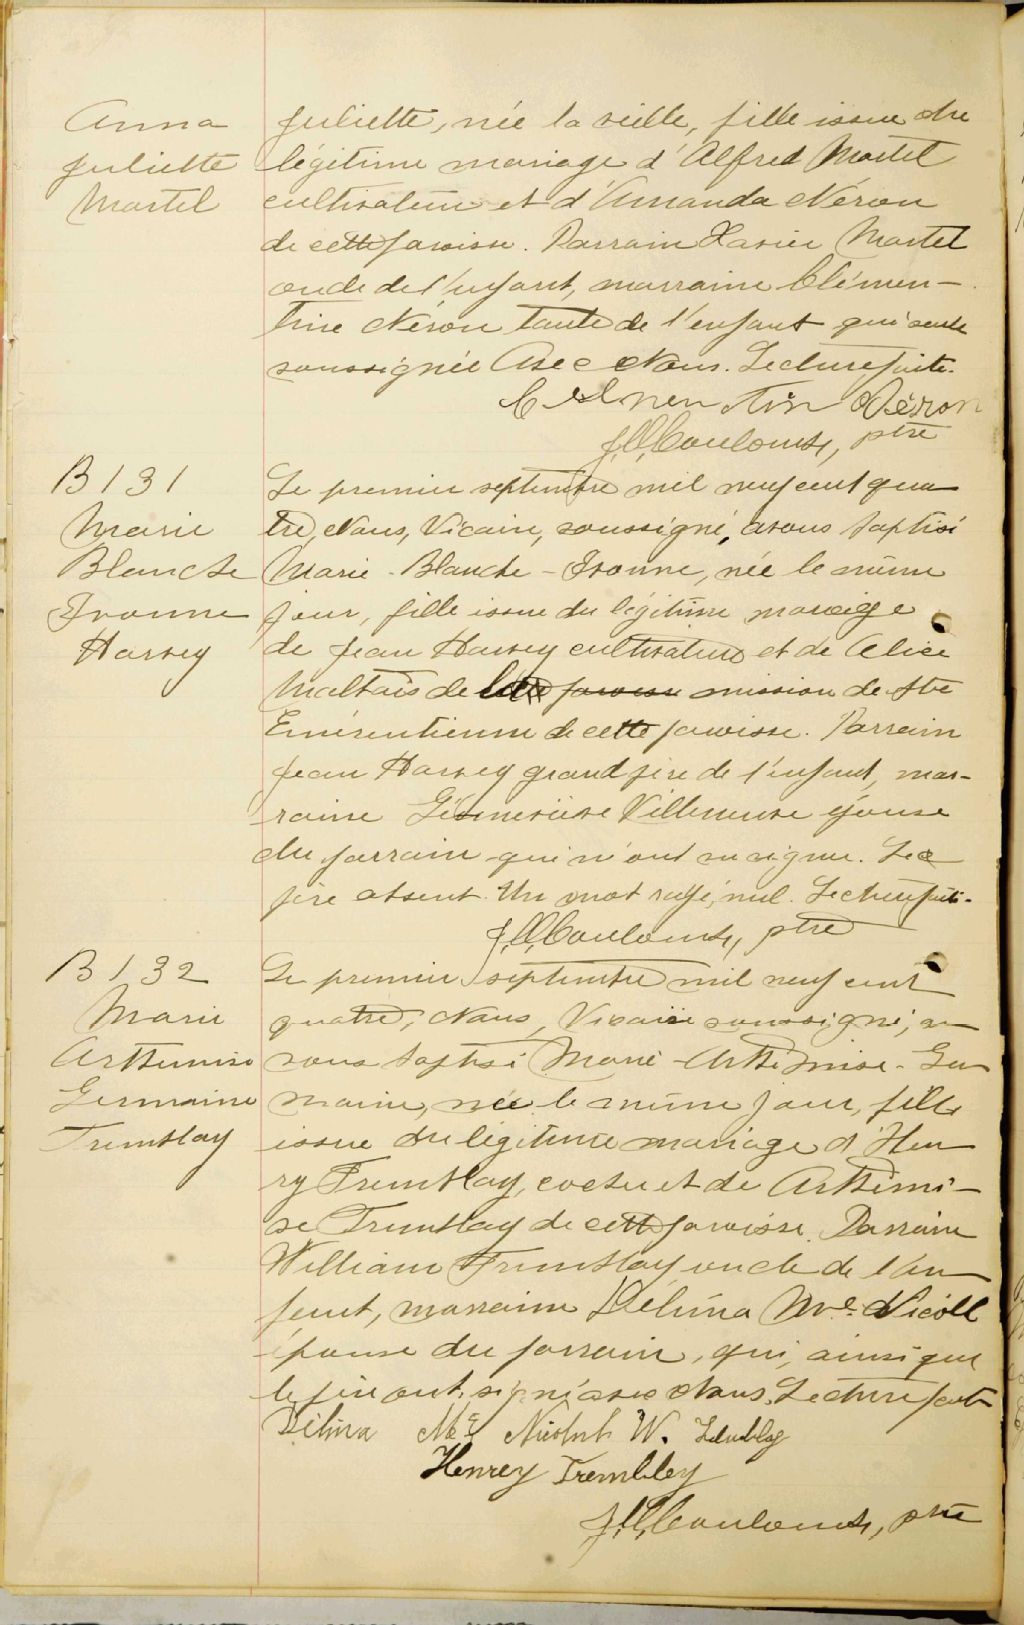 Anna
Juliette
Martel
Juliette, née la veille, fille issue du
légitime mariage d'Alfred Martel
cultivateur et d'Amanda Néron
de cette paroisse. Parrain Xavier Martel
oncle de l'enfant, marraine Clémen-
tine Néron tante de l'enfant qui seule
soussignée avec Nous. Lecture faite.
Néron
ptre
B 131
Marie
Blanche
Ivonne
Harvey
Le premier septembre mil neuf cent qua
tre, Nous, Vicaire, soussigné, avons baptisé
Marie-Blanche-Ivonne, née le même
jour, fille issue du légitime mariage
de Jean Harvey cultivateur et de Alice
Maltais de cette paroisse mission de Ste
Emérentienne de cette paroisse. Parrain
Jean Harvey grand père de l'enfant, mar-
raine Géneviève Villeneuve épouse
du parrain qui n'ont su signer. Le
père absent. Un mot rayé, nul. Lecture faite.
ptre
B 132
Marie
Arthémise
Germaine
Tremblay
Le premier septembre mil neuf cent
quatre, Nous, Vicaire soussigné, a
vons baptisé Marie-Arthémise-Ger
maine, née le même jour, fille
issue du légitime mariage d'Hen
ry Tremblay, cocher et de Arthémi-
se Tremblay de cette paroisse. Parrain
William Tremblay oncle de l'en
fant, marraine Délima Mc Nicoll
épouse du parrain, qui, ainsi que
le père ont signé avec Nous. Lecture faite
Délina Mc Nicoll W. Tremblay
Henrey Trembley
ptre